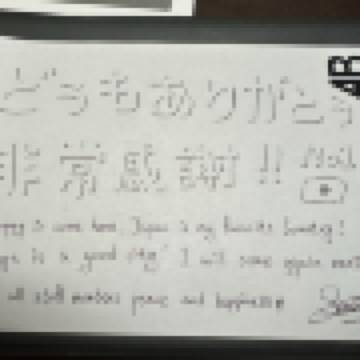 どうもありがとう
非常感謝!!
happy to come here. Japan is my favorite country!
is a good city! I will come again next
all staff members peace and happiness